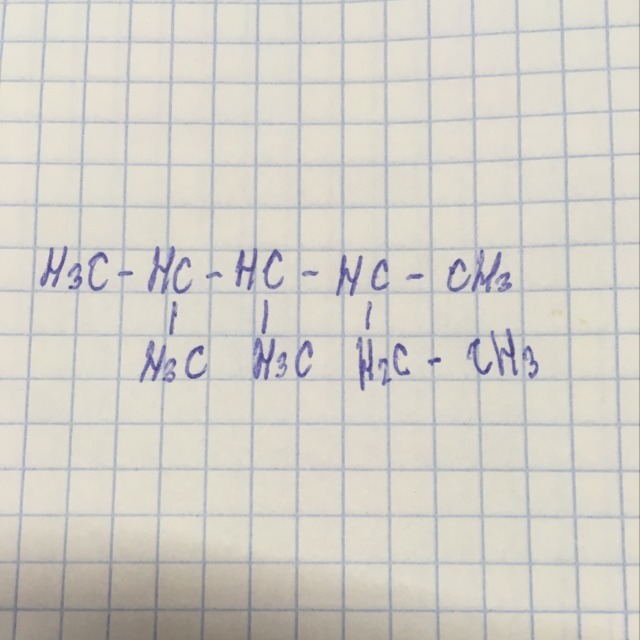 H₃C - HC - HC - HC - CH₃
H₃C H₃C H₂C - CH₃